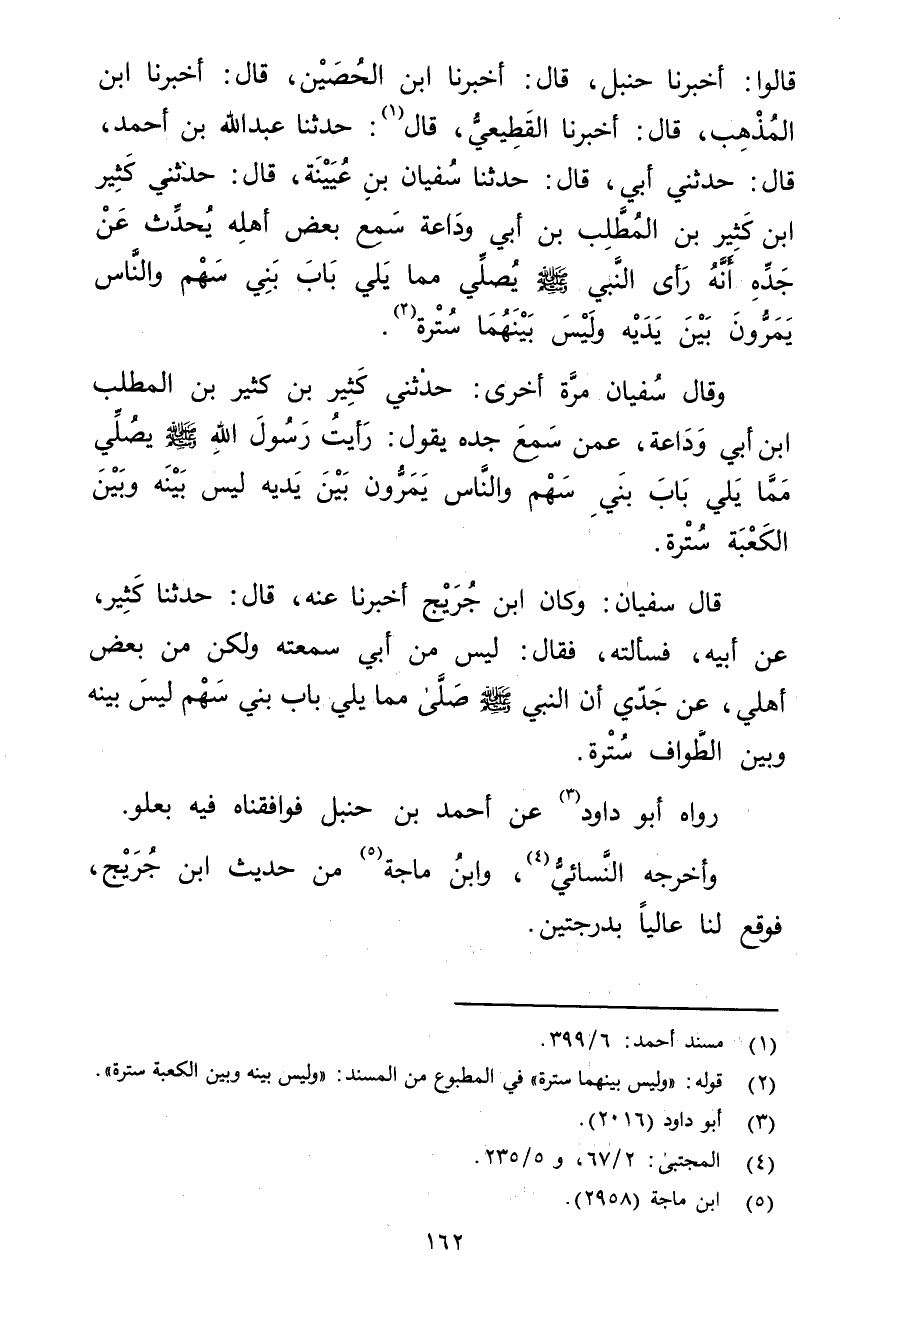 قالوا: أخبرنا حنبل، قال: أخبرنا ابن الحُصَيْن، قال: أخبرنا ابن
المُذْهِب، قال: أخبرنا القَطِيعيُّ، قال(١): حدثنا عبدالله بن أحمد،
قال: حدثني أبي، قال: حدثنا سُفيان بنِ عُيَيْنَة، قال: حدثني كَثِير
ابن كَثِير بن المُطَّلِب بن أبي ودَاعة سَمِع بعض أهلِه يُحدِّث عَنْ
جَدِّهِ أَنَّهُ رَأى النَّبي ﷺ يُصلِّي مما يَلي بَابَ بَنِي سَهْم والنَّاس
يَمَرُّونَ بَيْنَ يَدَيْه ولَيْسَ بَيْنَهُمَا سُتْرة(٢).
وقال سُفيان مرَّة أخرى: حدثني كَثِير بن كثير بن المطلب
ابن أبي وَدَاعة، عمن سَمِعَ جده يقول: رَأيتُ رَسُولَ اللهِ ﷺ يصُلِّي
مَمَّا يَلي بَابَ بنيِ سَهْم والنَّاس يَمَرُّون بَيْنَ يَديه ليس بَيْنَه وبَيْنَ
الكَعْبَة سُتْرة.
قال سفيان: وكان ابن جُرَيْج أخبرنا عنه، قال: حدثنا كَثِير،
عن أبيه، فسألته، فقال: ليس من أبي سمعته ولكن من بعض
أهلي، عن جَدّي أن النبي ﷺ صَلَّىٰ مما يلي باب بني سَهْم ليسَ بينه
وبين الطَّواف سُتْرة.
رواه أبو داود(٣) عن أحمد بن حنبل فوافقناه فيه بعلو.
وأخرجه النَّسائيُّ(٤)، وابنُ ماجة(٥) من حديث ابن جُرَيْج،
فوقع لنا عالياً بدرجتين.
(١) مسند أحمد: ٣٩٩/٦.
(٢) قوله: «وليس بينهما سترة» في المطبوع من المسند: «وليس بينه وبين الكعبة سترة».
(٣) أبو داود (٢٠١٦).
(٤) المجتبىٰ: ٦٧/٢، و ٢٣٥/٥.
(٥) ابن ماجة (٢٩٥٨).
١٦٢